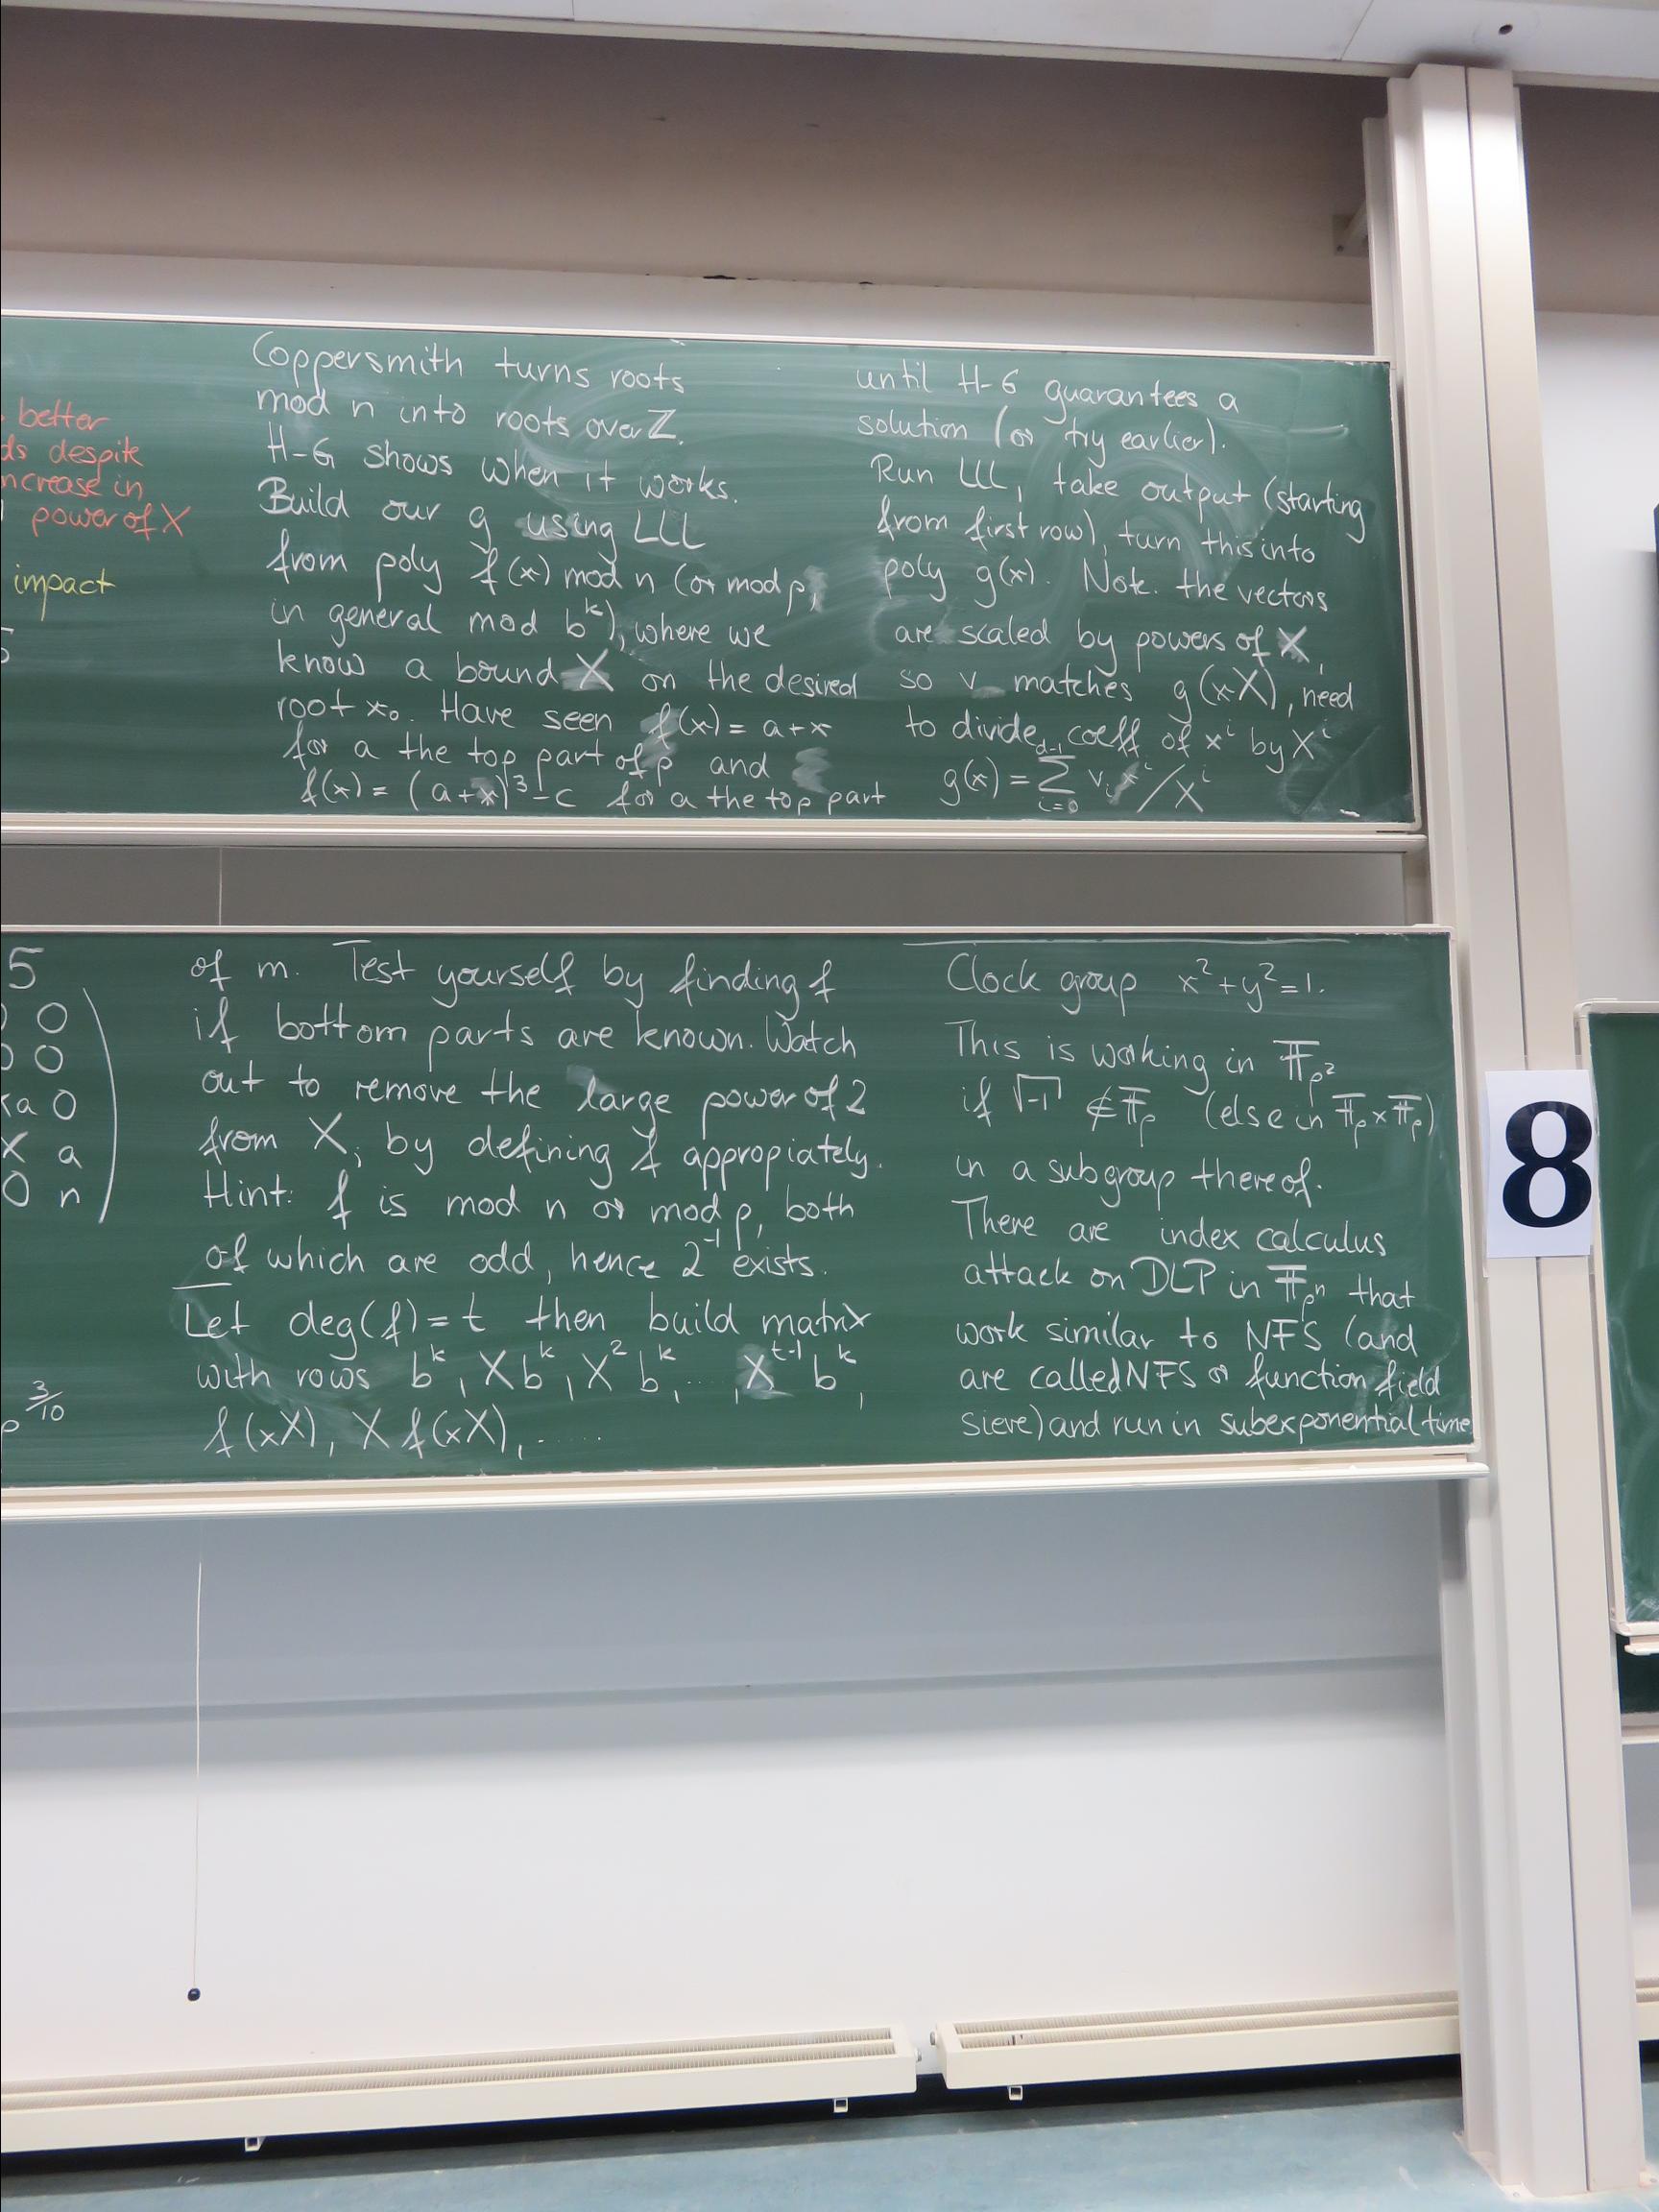 better
ds despite
ncrease in
power of X
impact
5
Coppersmith turns roots
mod n into roots over Z.
H-G shows when it works.
Build our g using LLL
from poly f(x) mod n (or mod p,
in general mod b^k), where we
know a bound X on the desired
root x₀. Have seen f(x) = a+x
for a the top part of p and
f(x) = (a+x)³-c for a the top part
until H-G guarantees a
solution (or try earlier).
Run LLL, take output (starting
from first row), turn this into
poly g(x). Note. the vectors
are scaled by powers of X,
so v matches g(xX), need
to divide coeff of xⁱ by Xⁱ
g(x) = Σ_{i=0}^{d-1} vᵢ xⁱ/Xⁱ
5
0 0
0 0
Xa 0
X a
0 n
p^{3/10}
of m. Test yourself by finding f
if bottom parts are known. Watch
out to remove the large power of 2
from X, by defining f appropiately.
Hint: f is mod n or mod p, both
of which are odd, hence 2⁻¹ exists.
Let deg(f) = t then build matrix
with rows b^k, Xb^k, X²b^k, ..., X^{t-1}b^k,
f(xX), Xf(xX), .....
Clock group x²+y²=1.
This is working in 𝔽_{p²}
if √-1 ∉ 𝔽_p (else in 𝔽_p×𝔽_p)
in a subgroup thereof.
There are index calculus
attack on DLP in 𝔽_{pⁿ} that
work similar to NFS (and
are called NFS or function field
sieve) and run in subexponential time
8